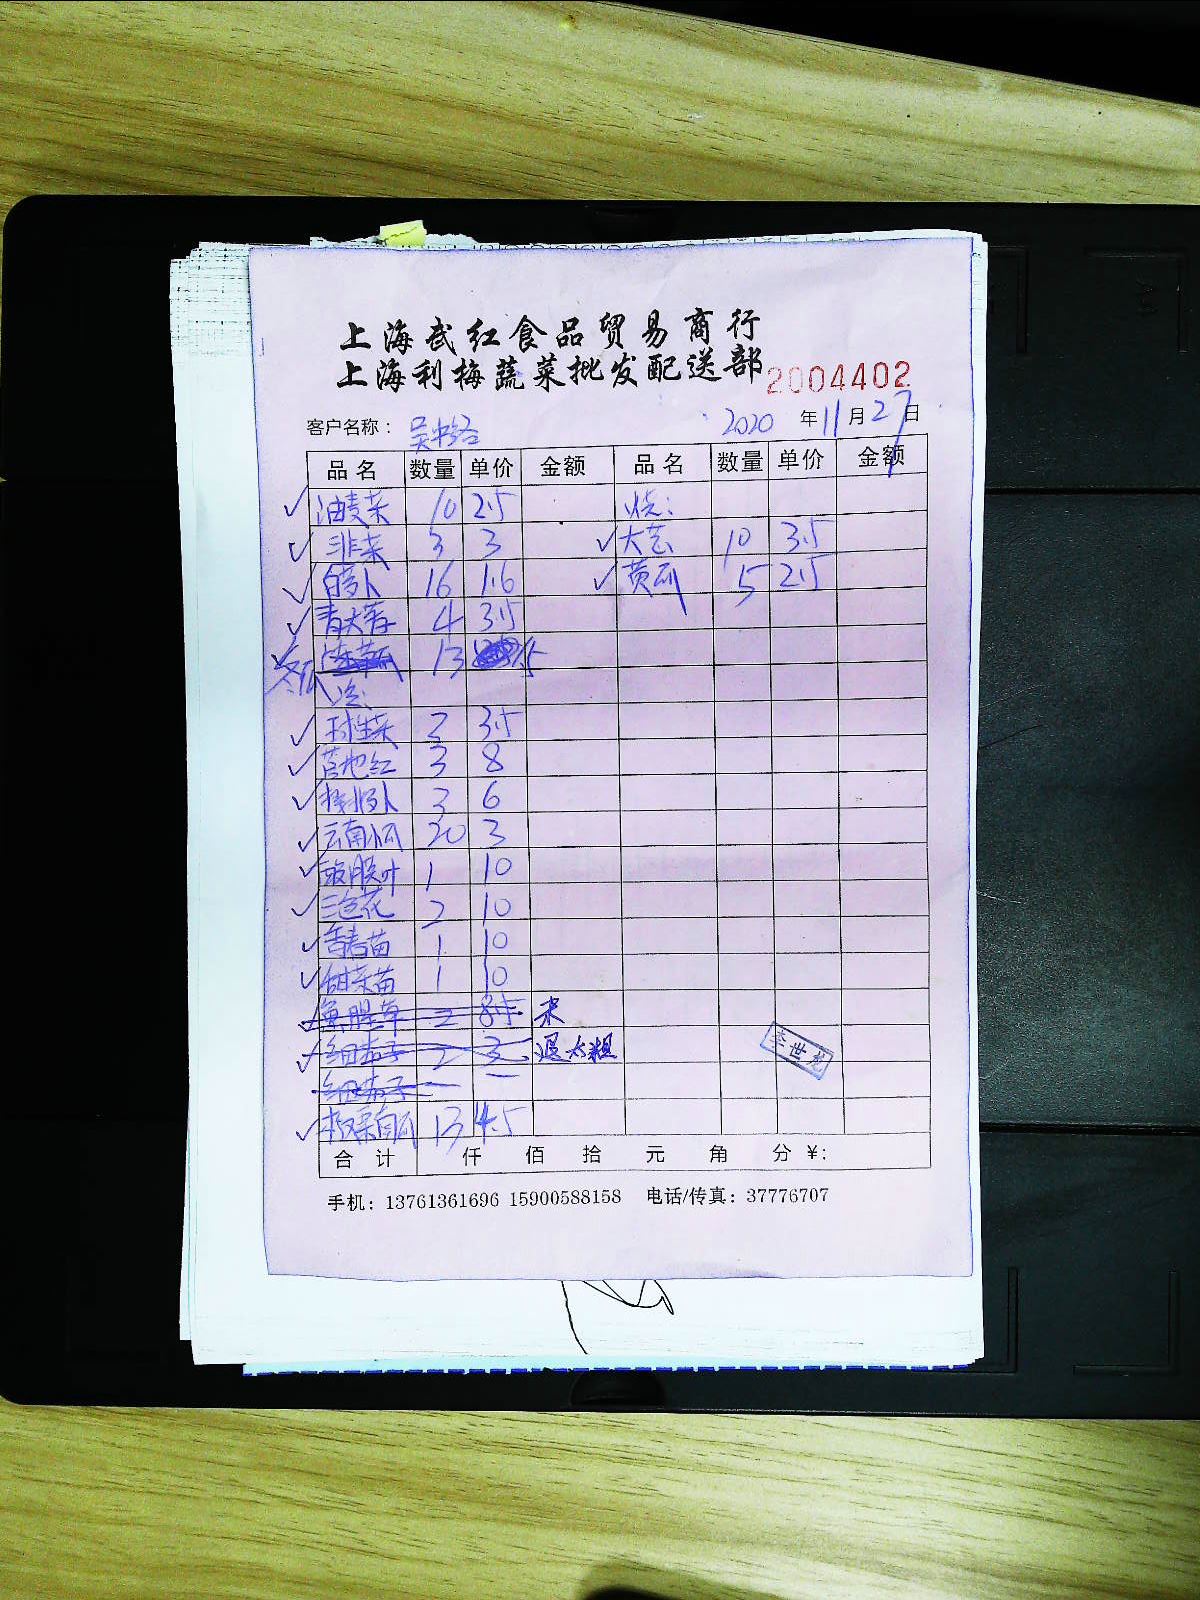 上海武红食品贸易商行
上海利梅蔬菜批发配送部 2004402
客户名称： 2020 年 11 月 27 日
品名 数量 单价 金额 品名 数量 单价 金额
油麦菜 10 2.5
韭菜 3 3 大 10 3.5
白萝卜 16 1.6 黄瓜 5 2.5
青大蒜 4 3.5
冬瓜 13
球生菜 2 3.5
3 8
3 6
云南小瓜 20 3
1 10
三色花 2 10
香春苗 1 10
甜菜苗 1 10
鱼腥草 2 8.5 未
细茄子 2 3 退太粗
细茄子
板栗南瓜 13 4.5
合计 仟 佰 拾 元 角 分 ¥:
李世龙
手机：13761361696 15900588158 电话/传真：37776707